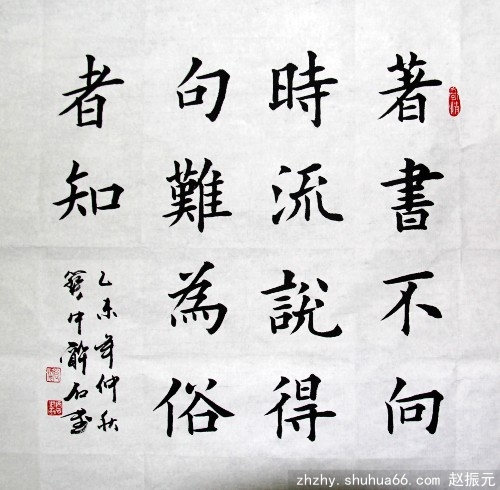 著書不向
時流說得
句難為俗
者知
乙未年仲秋
石
zhzhy.shuhua66.com 赵振元